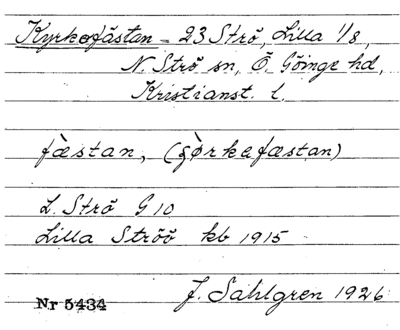 Kyrkofästan - 23 Strö, Lilla 1/8,
N. Strö sn, Ö. Göinge hd,
Kristianst. l.
fæ̀stan, (çø̀rkefæstan)
L. Strö G 10
Lilla Ströö kb 1915
Nr 5434 J. Sahlgren 1926